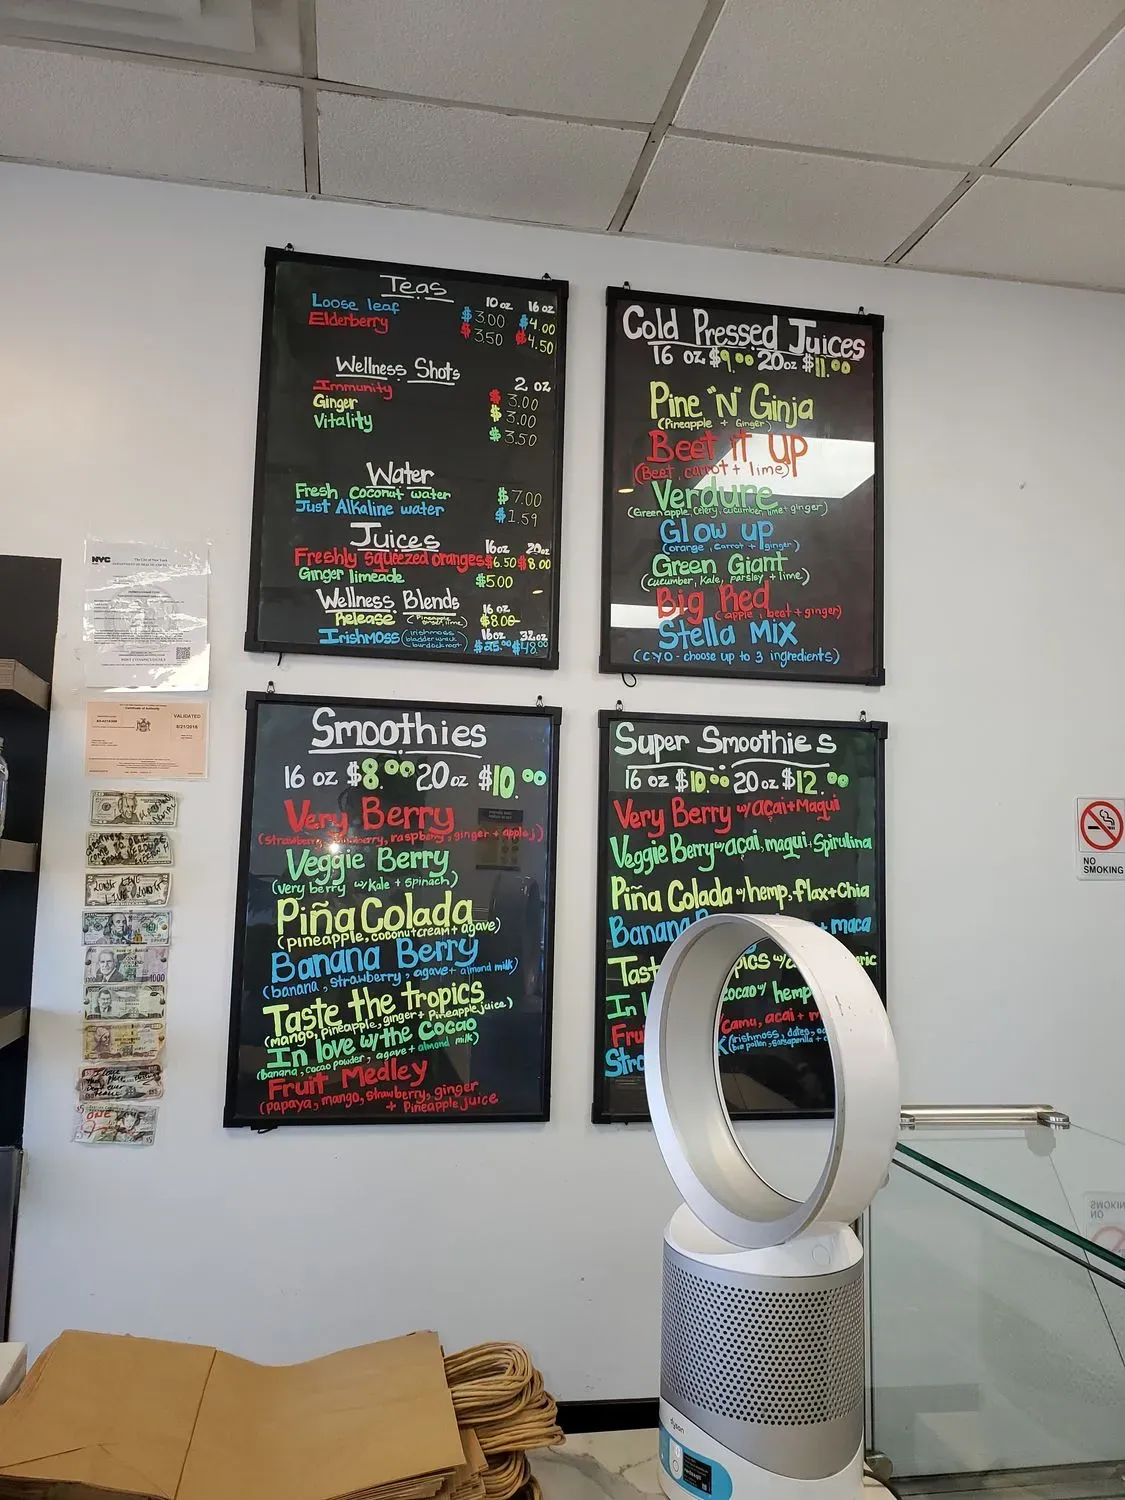 Teas
10 oz 16 oz
Loose leaf $3.00 $4.00
Elderberry $3.50 $4.50
Wellness Shots
2 oz
Immunity $3.00
Ginger $3.00
Vitality $3.50
Water
Fresh coconut water $7.00
Just Alkaline water $1.59
Juices 16oz 20oz
Freshly squeezed oranges $6.50 $8.00
Ginger limeade $5.00
Wellness Blends 16 oz
Release (Pineapple, ginger, lime) $8.00
Irishmoss (irishmoss bladderwrack burdockroot) 16oz $25.00 32oz $48.00
Cold Pressed Juices
16 oz $9.00 20oz $11.00
Pine "N" Ginja
(Pineapple + Ginger)
Beet it UP
(Beet, carrot + lime)
Verdure
(Green apple, celery, cucumber, lime + ginger)
Glow up
(orange, carrot + ginger)
Green Giant
(cucumber, Kale, parsley + lime)
Big Red (apple, beat + ginger)
Stella Mix
(C.Y.O - choose up to 3 ingredients)
Smoothies
16 oz $8.00 20oz $10.00
Very Berry
(strawberry, raspberry, ginger + apple j)
Veggie Berry
(very berry w/kale + spinach)
Piña Colada
(pineapple, coconutcream + agave)
Banana Berry
(banana, strawberry, agave + almond milk)
Taste the tropics
(mango, pineapple, ginger + Pineapple juice)
In love w/the cocao
(Banana, cacao powder, agave + almond milk)
Fruit Medley
(papaya, mango, strawberry, ginger
+ Pineapple juice
Super Smoothies
16 oz $10.00 20 oz $12.00
Very Berry w/açai + Maqui
Veggie Berry w/acai, maqui, Spirulina
Piña Colada w/hemp, flax + Chia
Banana + maca
Tast pics w/
In l cocao w/ hemp
Frui Camu, acai + m
Stro (irishmoss, dates,
bee pollen, sarsaparilla +
NYC
The City of New York
Certificate of Authority
VALIDATED
8/21/2018
NO
SMOKING
dyson